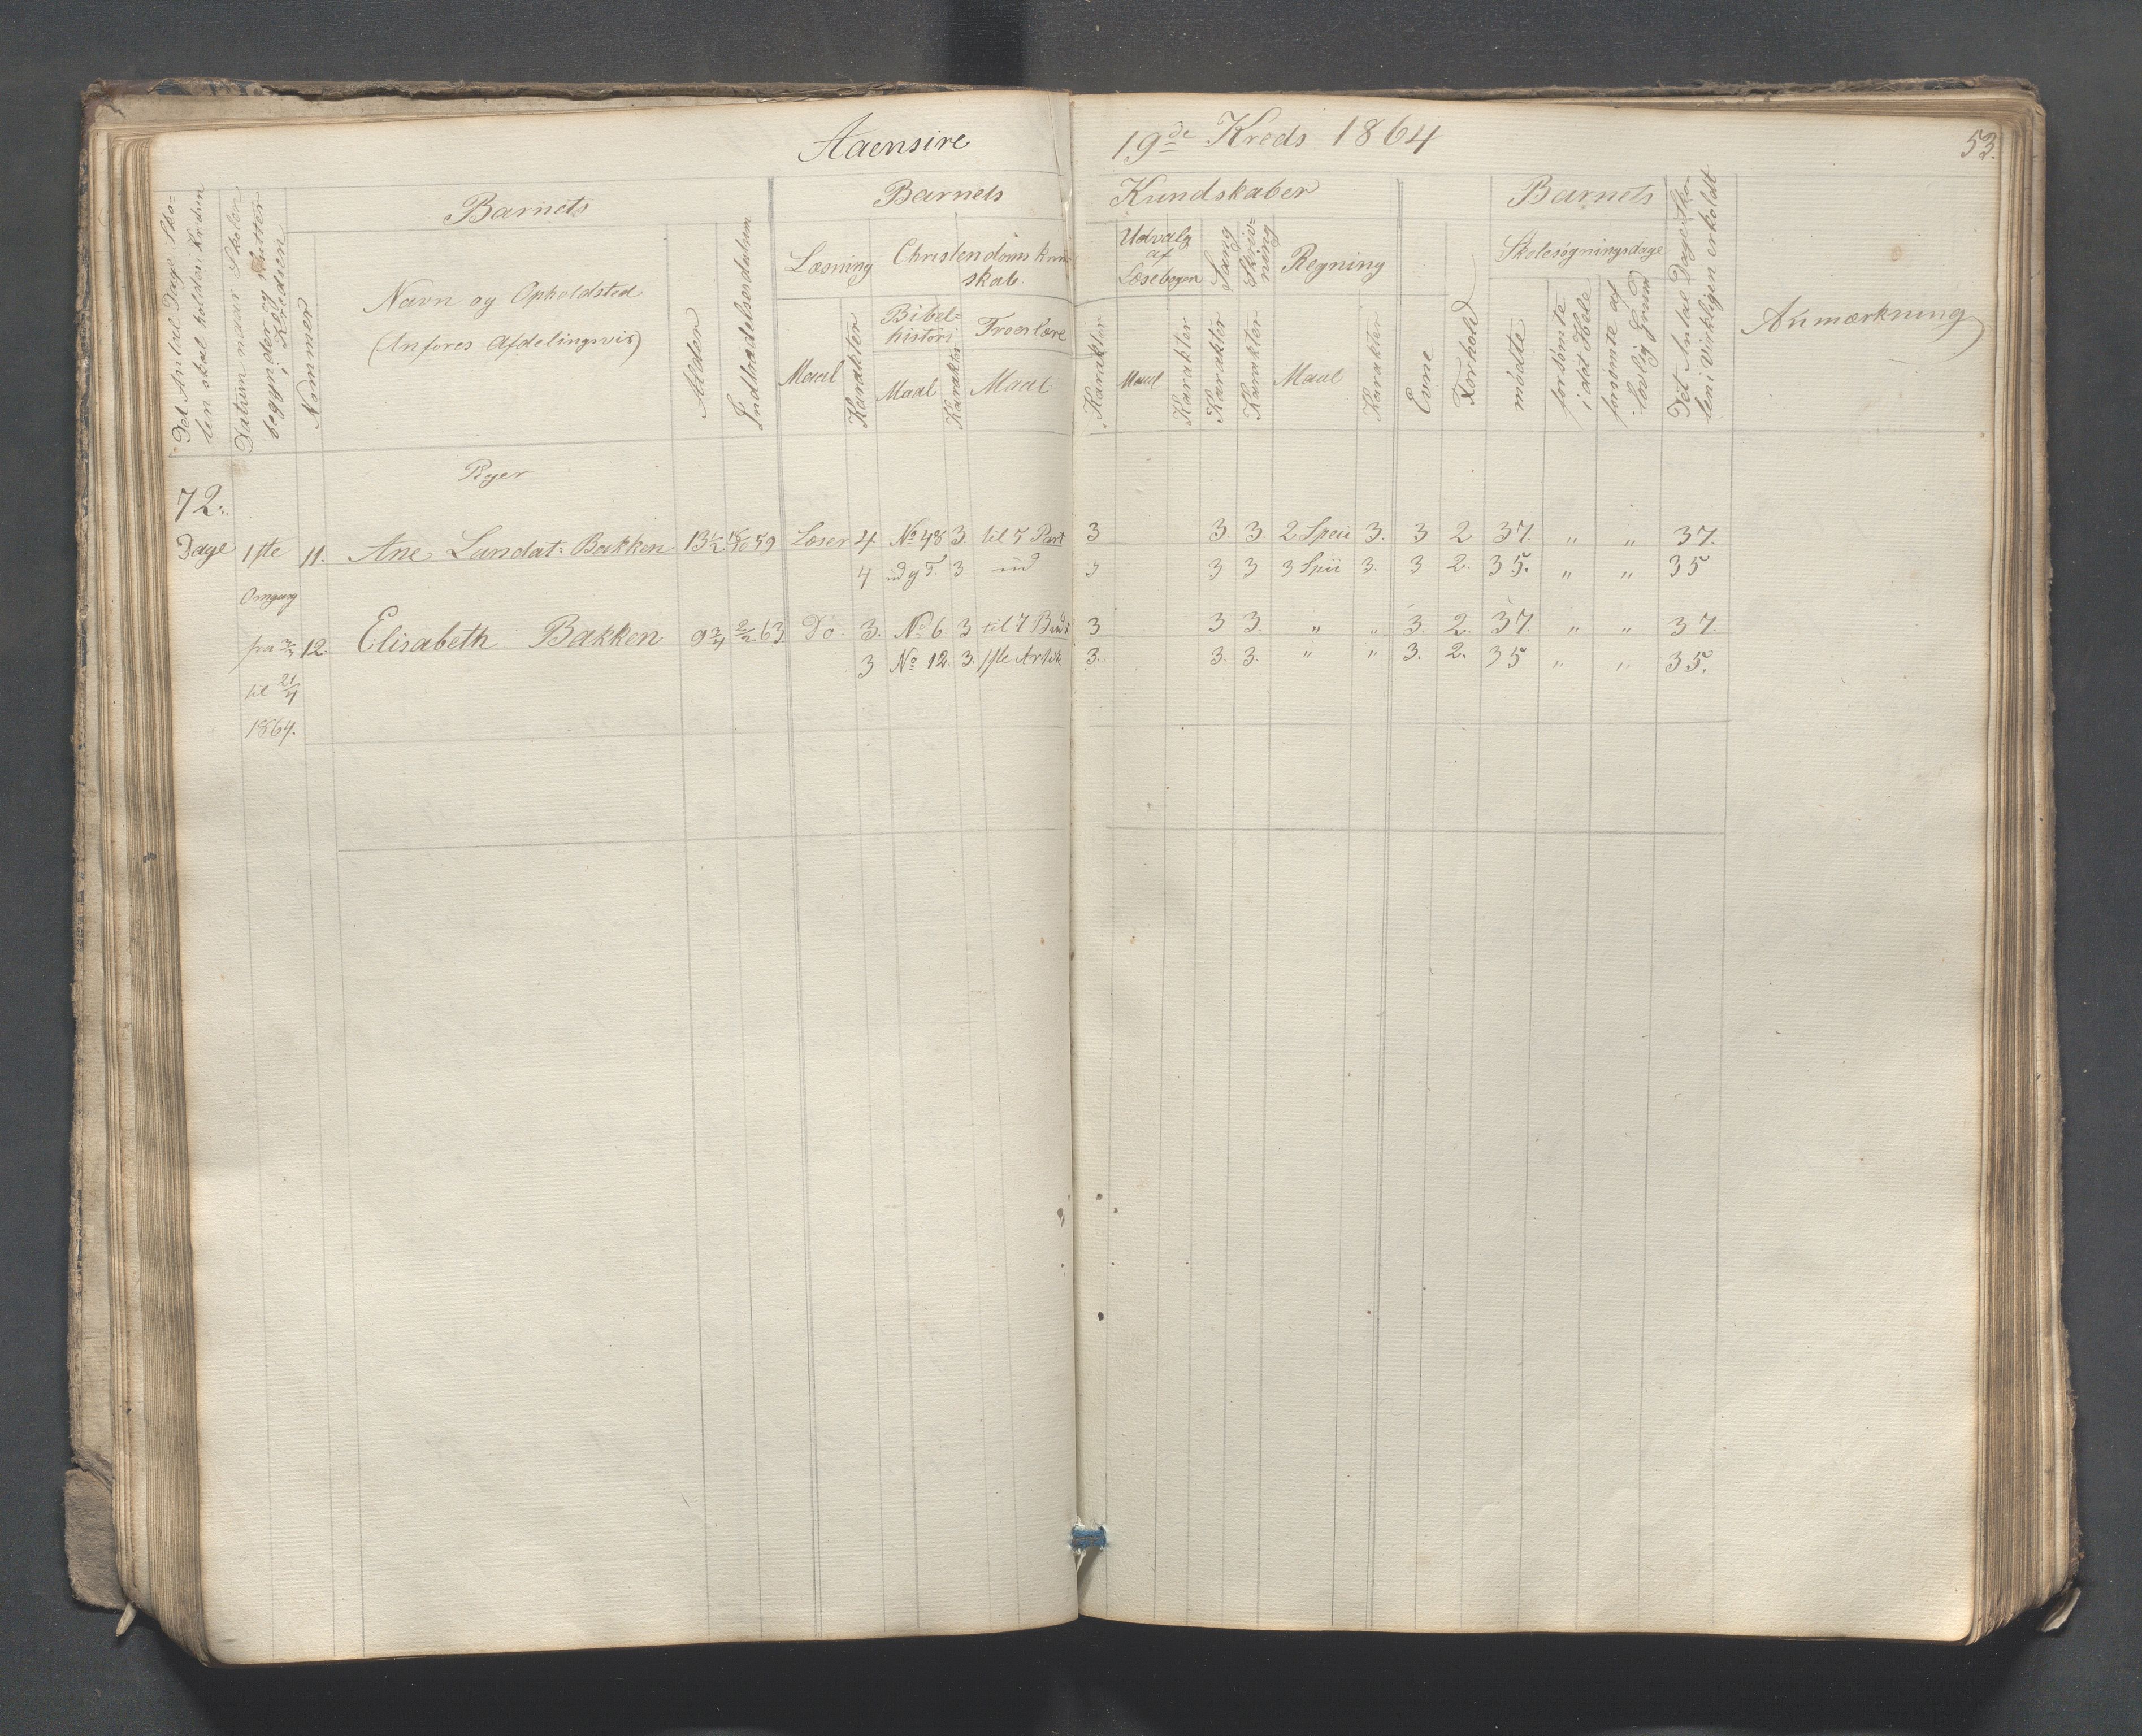 Aaensire 19de Kreds 1864
53.
Det Antal Dage Sko-
len skal holdes i Kredsen
Datum naar Skolen
begynder og slutter
i Kredsen
Nommer
Barnets
Navn og Opholdsted
(Anføres Afdelingsvis)
Alder
Indtrædelsesdatum
Barnets Kundskaber
Læsning
Maal
Karakter
Christendoms kund
skab.
Bibel-
histori
Maal
Karakter
Troeslære
Maal
Karakter
Udvalg
af
Læsebogen
Maal
Karakter
Sang
Karakter
Skriv-
ning
Karakter
Regning
Maal
Karakter
Evne
Forhold
Barnets
Skolesøgningsdage
mødte
forsømte
i det Hele
forsømte af
lovlig Grund
Det Antal Dage Sko-
len i Virkligen erholdt
Anmærkning
Piger
72.
Dage 1ste 11. Ane Landat: Bakken 13 1/2 59 Læser 4 No 48 3. til 5 Part 3 3. 3. 2 Speci 3. 3 2 37. " " 37.
4 ud g T. 3 ud 3 3 3 3 Spii 3. 3 2. 35. " " 35
Omgang
fra 3/3 12. Elisabeth Bakken 9 3/4 2/2 63 Do. 3. No 6 3 til 7 Bud 3 3 3. " " 3. 2. 37. " " 37.
3 No 12. 3. 1ste Artik 3. 3. 3. " " 3. 2. 35 " " 35.
til 21/4
1864.